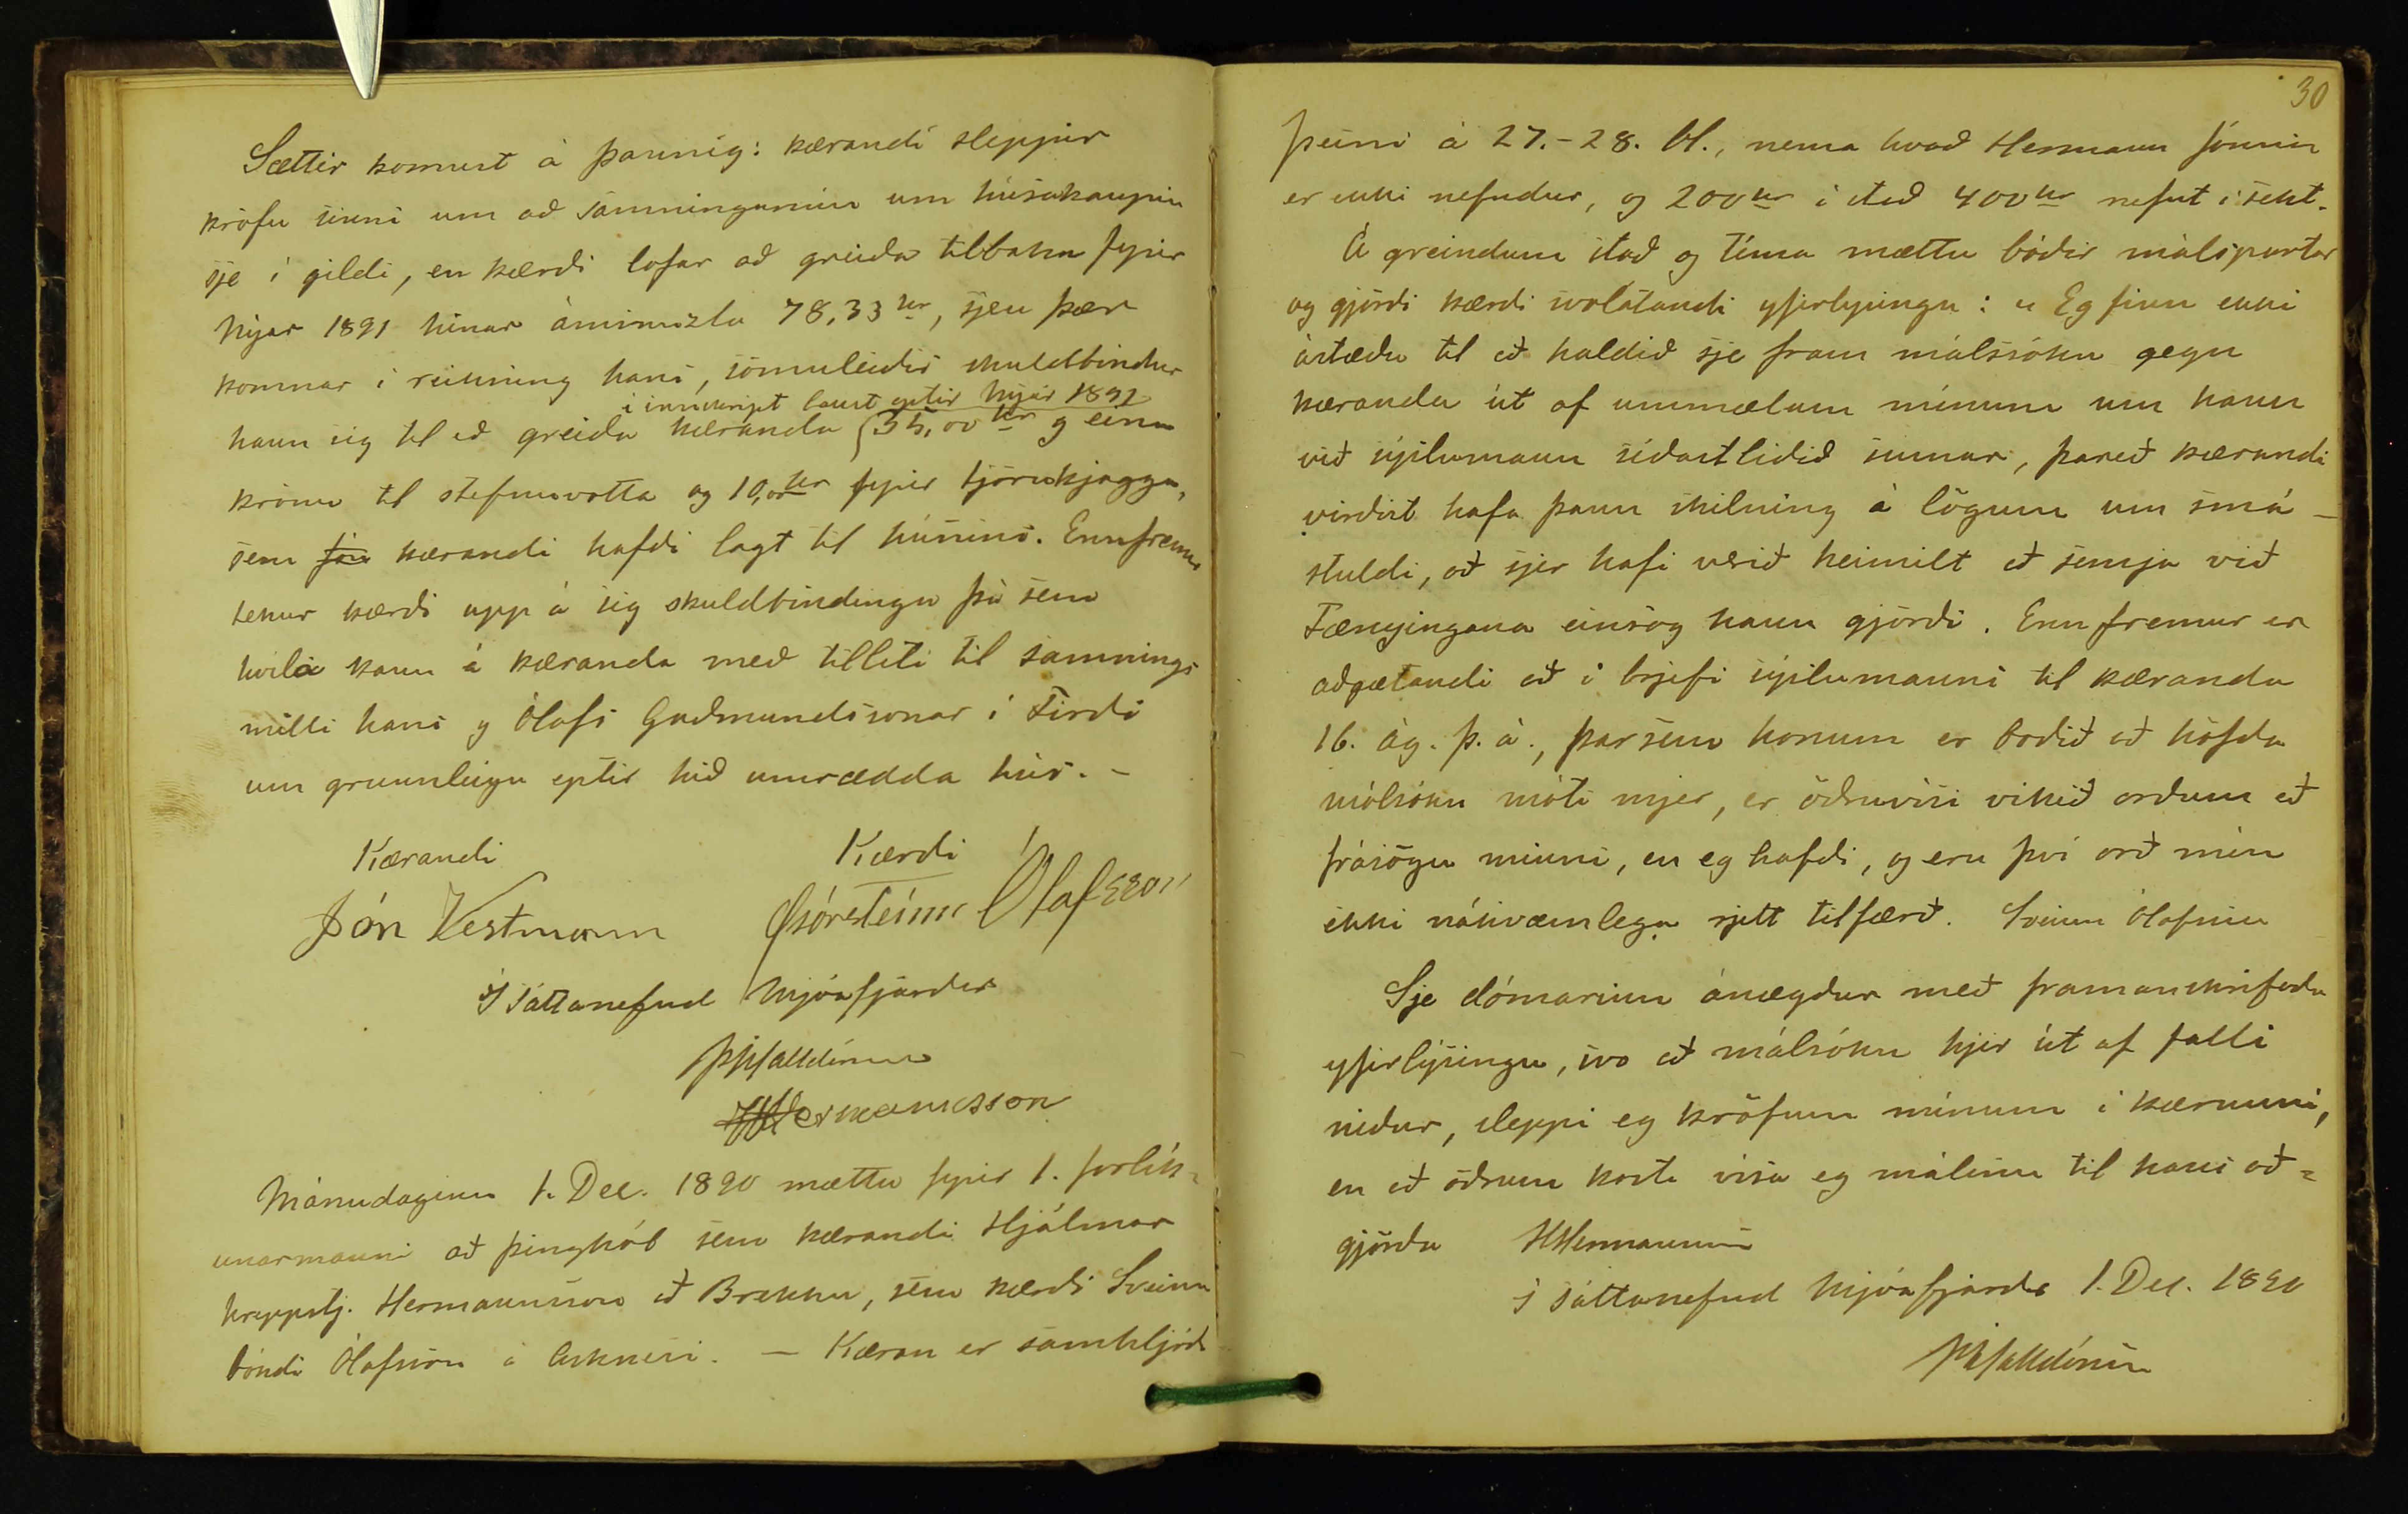 Sættir komust á þannig: kærandi sleppir
kröfu sinni um að samningurinn um húsakaupin
sje í gildi, en kærði lofar að greiða tilbaka fyrir
Nýar 1891 hinar áminnstu 78,33 kr, sjeu þær
komnar í reikning hans, sömuleiðis skuldbindur
i innskript laust eptir Nýár 1891
hann sig til að greiða kæranda 35,00 kr og eina
krónu til stefnuvotta og 10,00 kr fyrir tjörukjagga,
sem kærandi hafði lagt til húsins. Ennfremur
tekur kærði upp á sig skuldbindingu þá sem
hvíla kann á kæranda með tilliti til samnings
milli hans og Ólafs Guðmundssonar í Firði
um grunnleigu eptir hið umrædda hús. -
Kærandi Kærði
Jón Vestmann Þórsteinn Ólafsson
Í sáttanefnd Mjóafjarðar
Hermannsson
Mánudaginn 1. Dec. 1890 mættu fyrir 1. forlík-
unarmanni að þinghól sem kærandi Hjálmar
hreppstj. Hermannsson að Brekku, sem kærði Sveinn
bóndi Ólafsson á Asknesi. — Kæran er samhljóða
30
þeirri á 27.-28. bl., nema hvað Hermann Jónsson
er ekki nefndur, og 200 kr í stað 400 kr nefnt í sekt.
Á greindum stað og tíma mættu báðir málspartar
og gjörði kærði svolátandi yfirlýsingu: „Eg finn ekki
ástæðu til að haldið sje fram málssókn gegn
kæranda út af ummælum mínum um hann
við sýslumann síðastliðið sumar, þareð kærandi
virðist hafa þann skilning á lögum um smá-
stuldi, að sjer hafi verið heimilt að semja við
Færeyingana einsog hann gjörði. Ennfremur er
aðgætandi að í brjefi sýslumanns til kæranda
16. Ág. þ. á., þarsem honum er boðið að höfða
málsókn móti mjer, er öðruvísi vikið orðum að
frásögu minni, en eg hafði, og eru því orð mín
ekki nákvæmlega rjett tilfærð. Sveinn Ólafsson
Sje dómarinn ánægður með framanskrifaða
yfirlýsingu, svo að málsókn hjer út af falli
niður, sleppi eg kröfum mínum í kærunni,
en að öðrum kosti vísa eg málinu til hans að=
gjörða HHermannsson
Í sáttanefnd Mjóafjarðar 1. Dec. 1890